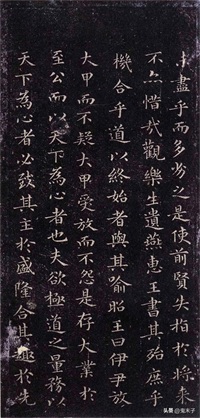 未盡乎而多劣之是使前賢失指於將來
不亦惜哉觀樂生遺燕惠王書其殆庶乎
機合乎道以終始者與其喻昭王曰伊尹放
大甲而不疑大甲受放而不怨是存大業於
至公而以天下為心者也夫欲極道之量務以
天下為心者必致其主於盛隆合其趣於先
头条